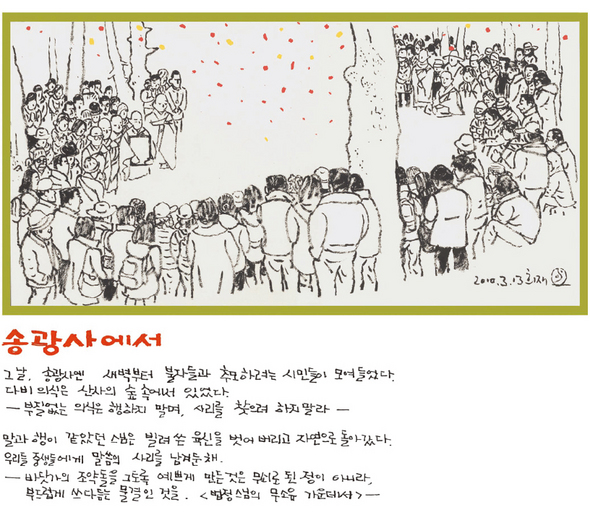 2010.3.13 희재
송광사에서
그날, 송광사엔 새벽부터 불자들과 추모하려는 시민들이 모여들었다.
다비 의식은 산사의 숲속에서 있었다.
— 부질없는 의식은 행하지 말며, 사리를 찾으려 하지말라 —
말과 행이 같았던 스님은 빌려 쓴 육신을 벗어 버리고 자연으로 돌아갔다.
우리들 중생들에게 말씀의 사리를 남겨둔채.
— 바닷가의 조약돌을 그토록 예쁘게 만든것은 무쇠로 된 정이 아니라,
부드럽게 쓰다듬는 물결인 것을. <법정스님의 무소유 가운데서> —